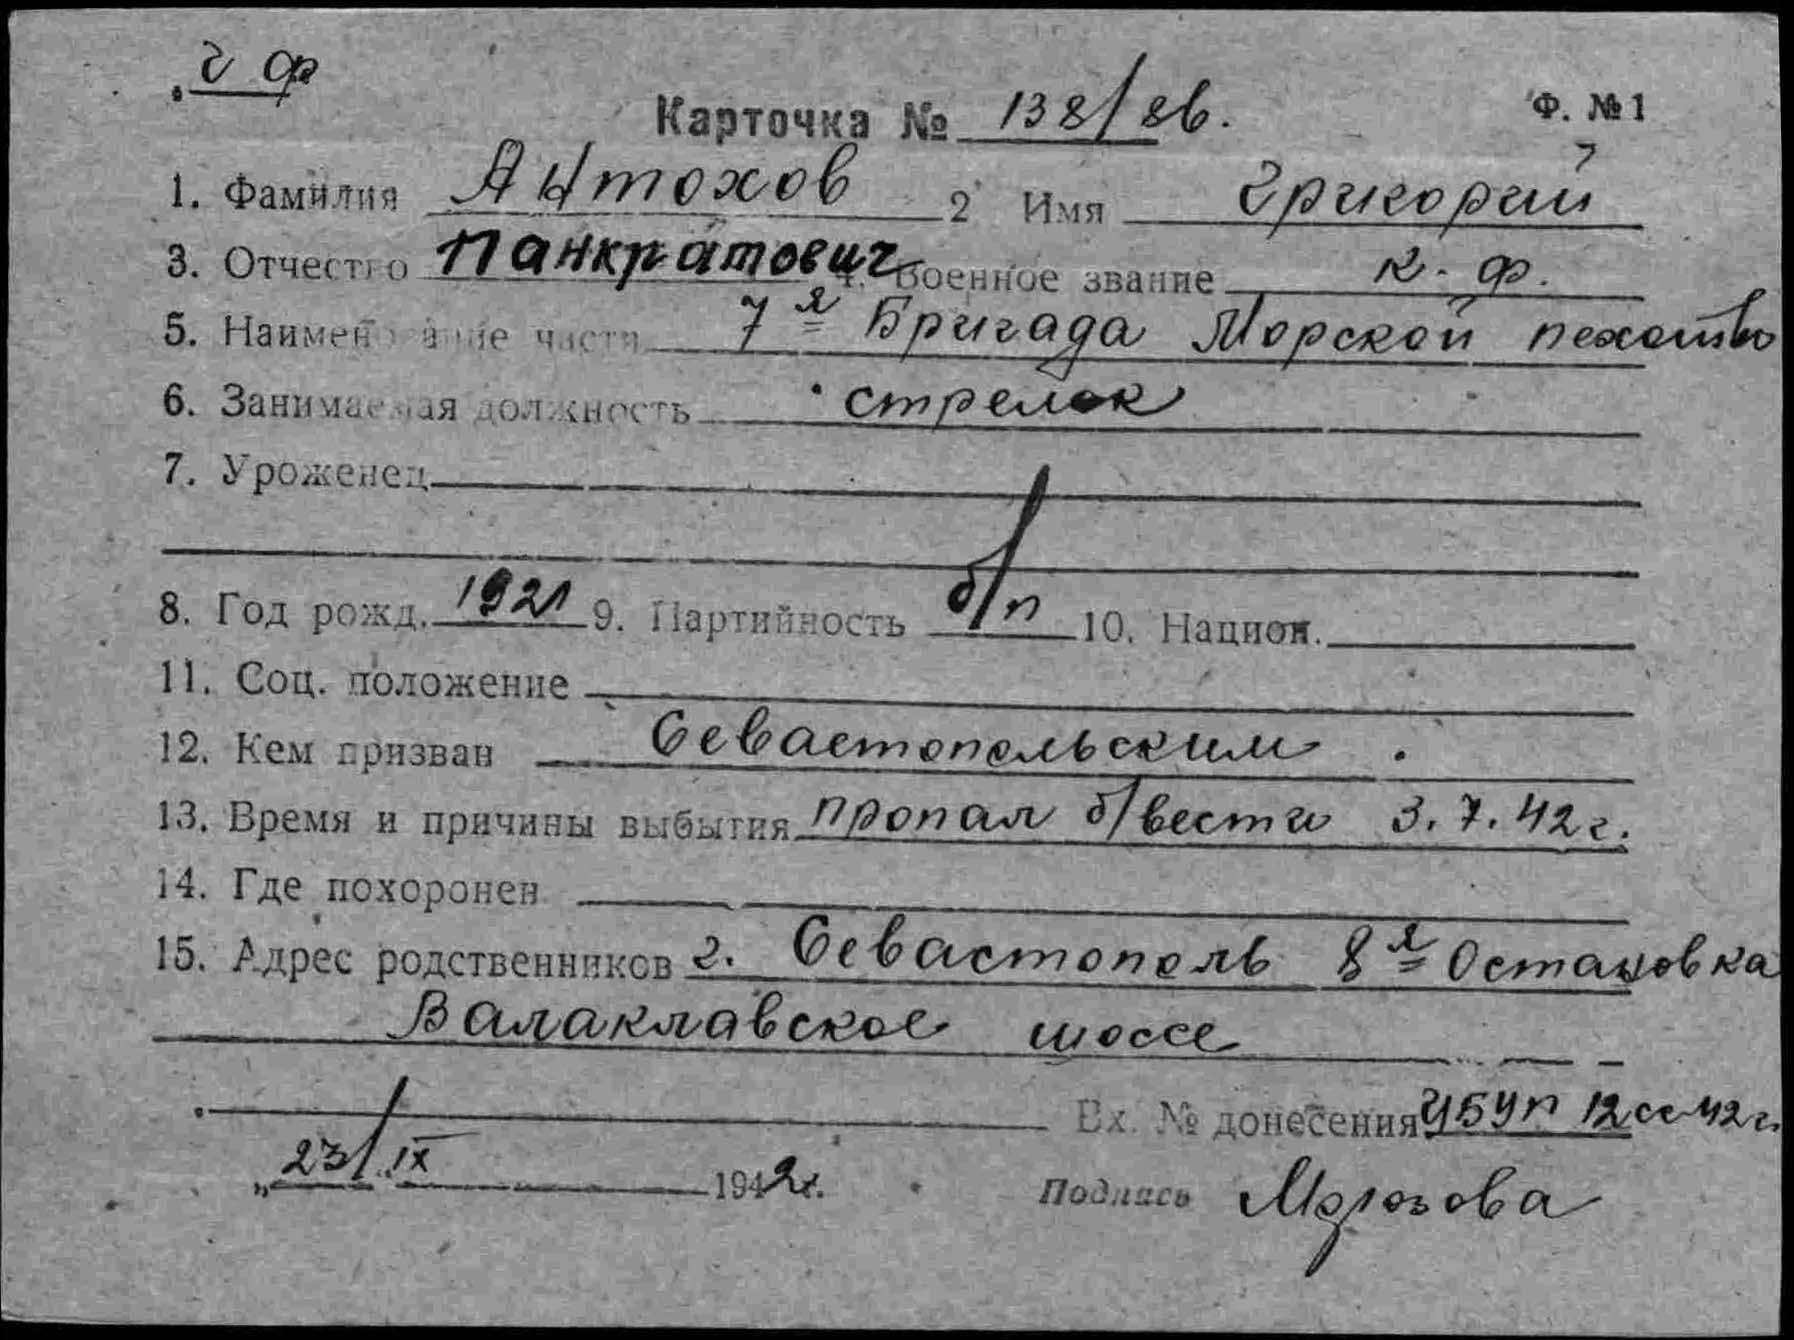 ч ф
Карточка № 138/8б. Ф. № 1
1. Фамилия Антохов 2 Имя Григорий
3. Отчество Панкратович 4. Военное звание к. ф.
5. Наименование части 7я Бригада Морской пехоты
6. Занимаемая должность стрелок
7. Уроженец
8. Год рожд. 1921 9. Партийность б/п 10. Национ.
11. Соц. положение
12. Кем призван Севастопольским
13. Время и причины выбытия пропал б/вести 3.7.42г.
14. Где похоронен
15. Адрес родственников г. Севастополь 8я Остановка
Балаклавское шоссе
Вх. № донесения 12сс 42г.
„23/IX 1942г.
Подпись Морозова